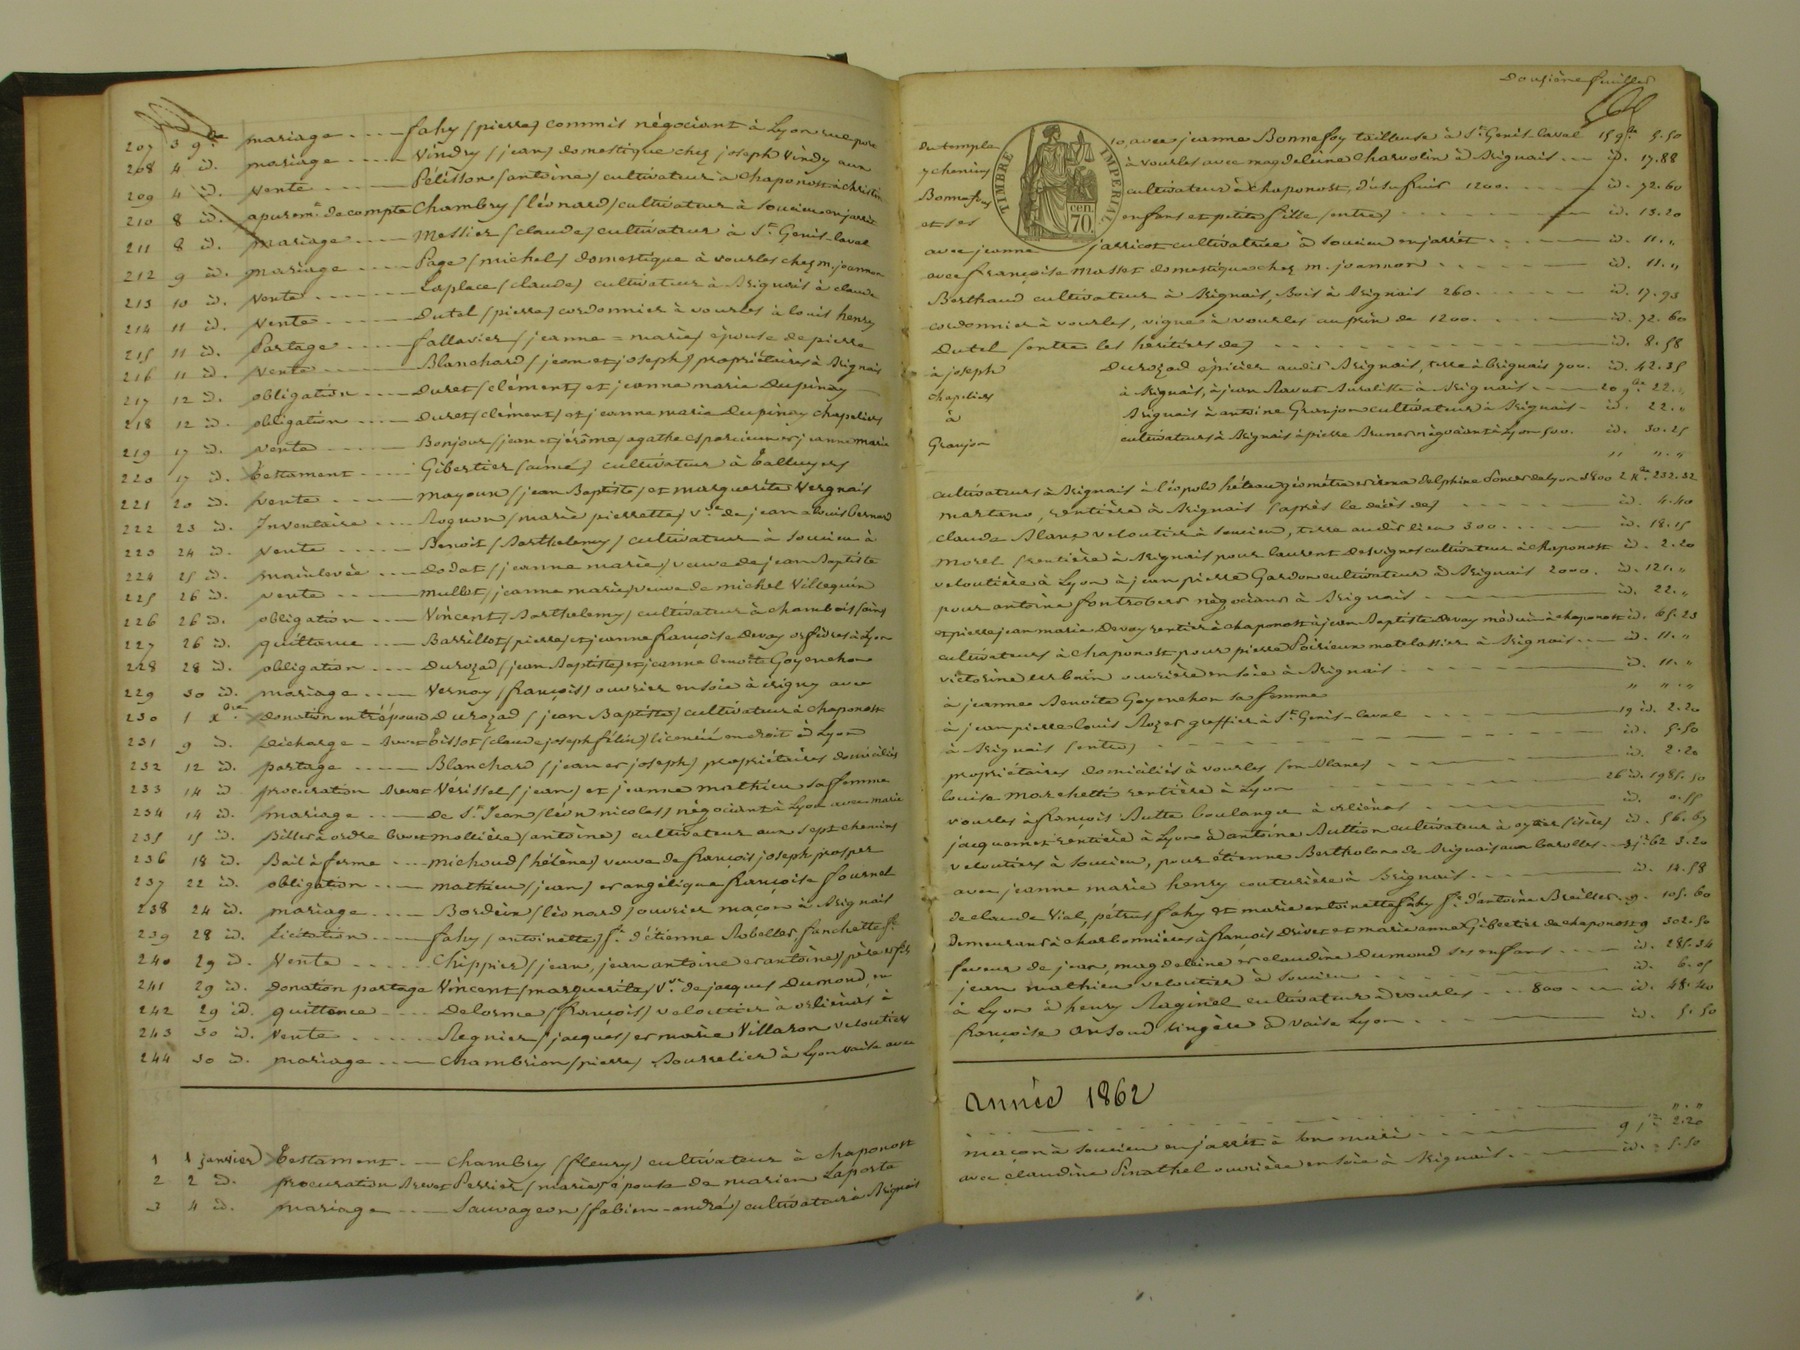 207 3 9bre mariage .... fahy (pierre) commis négociant à Lyon rue port
208 4 id. mariage .... Vindry (jean) domestique chez joseph Vindy aux
209 4 id. vente .... Pélisson (antoine) cultivateur à chaponost à christin
210 8 id. apuremt. de compte Chambry (léonard) cultivateur à soucieu en jarret
211 8 id. mariage .... Messier (claude) cultivateur à St. Genis-laval
212 9 id. mariage .... Page (michel) domestique à vourles chez m. joannon
213 10 id. vente .... Laplace (claude) cultivateur à Brignais à claude
214 11 id. vente .... Dutel (pierre) cordonnier à vourles à louis henry
215 11 id. Partage .... fallavier (jeanne-marie) épouse de pierre
216 11 id. vente .... Blanchard (jean et joseph) propriétaires à Brignais
217 12 id. obligation .... Duret (clément) et jeanne marie Dupinay
218 12 id. obligation .... Duret (clément) et jeanne marie Dupinay chapeliers
219 17 id. vente .... Bonjour (jean et jérôme) agathe et jeanne marie
220 17 id. Testament .... Gibertier (aimé) cultivateur à Talluyers
221 20 id. vente .... mayoux (jean Baptiste) et marguerite Vergnais
222 23 id. Inventaire .... (marie pierrette) Ve. de jean Louis Bernard
223 24 id. vente .... Benoit (Barthelemy) cultivateur à soucieu à
224 25 id. mainlevée .... Dodat (jeanne marie) veuve de jean Baptiste
225 26 id. vente .... mullet (jeanne marie) veuve de michel Villeguin
226 26 id. obligation .... Vincent (Barthelemy) cultivateur à
227 26 id. quittance .... Barrillot (pierre) et jeanne françoise Devay orfèvres à Lyon
228 28 id. obligation .... Durozad (jean Baptiste) et jeanne benoite Goyenchon
229 30 id. mariage .... Vernay (françois) ouvrier en soie à irigny avec
230 1 Xbre. donation entre époux Durozad (jean Baptiste) cultivateur à chaponost
231 9 id. décharge - Brevet Tissot (claude joseph félix) licencié en droit à Lyon
232 12 id. partage .... Blanchard (jean et joseph) propriétaires domiciliés
233 14 id. procuration Brevet Vérissel (jean) et jeanne mathieu sa femme
234 14 id. mariage .... de St. Jean (léon nicolas) négociant à Lyon avec marie
235 15 id. Billet à ordre brevet mollière (antoine) cultivateur aux sept chemins
236 18 id. Bail à ferme .... michoud (hélène) veuve de françois joseph prosper
237 22 id. obligation .... mathieu (jean) et angélique françoise fournel
238 24 id. mariage .... Bordeix (léonard) ouvrier maçon à Brignais
239 28 id. Licitation .... fahy (antoinette) fe. d'étienne Robelles fanchette fe.
240 29 id. Vente .... Chippier (jean, jean antoine et antoine) père et fils
241 29 id. donation partage Vincent (marguerite) Ve. de jacques Dumond, en
242 29 id. quittance .... Delorme (françois) veloutier à orliénas à
243 30 id. Vente .... Regnier (jacques) et marie Villaron veloutier
244 30 id. mariage .... Chambrion (pierre) Bourrelier à Lyon vaise avec
1 1 janvier Testament .... chambry (fleury) cultivateur à chaponost
2 2 id. procuration Brevet Perrier (marie) épouse de marien Laporte
3 4 id. mariage .... Sauvageon (fabien-andré) cultivateur à Brignais
Douzième feuillet
TIMBRE IMPERIAL
cen. 70.
du temple 10, avec jeanne Bonnefoy tailleuse à St. Genis-laval 15 9bre 5.50
7 chemins à vourles avec magdeleine Charvolin à Brignais .... id. 17.88
Bonnefoy cultivateur à chaponost, d'usufruit 1200. .... id. 72.60
et ses enfans et petite fille (entre) .... id. 13.20
avec jeanne jarricot cultivatrice à soucieu en jarrêt .... id. 11."
avec françoise Masset domestique chez m. joannon .... id. 11."
Berthaud cultivateur à Brignais, Bois à Brignais 260. .... id. 17.93
cordonnier à vourles, vigne à vourles au prix de 1200. .... id. 72.60
Dutel (entre les héritiers de) .... id. 8.58
à joseph Durozad épicier audit Brignais, terre à brignais 700. id. 42.35
chapeliers à Brignais, à jean Ravat à Brignais .... 20 9bre 22."
à Brignais à antoine Granjon cultivateur à Brignais - id. 22."
Granjon cultivateurs à Brignais à pierre Brunet négociant à Lyon 500. id. 30.25
" "."
cultivateurs à Brignais à léopold géomètre et irma delphine de Lyon 3800 2 Xbre 232.32
martino, rentière à Brignais (après le décès de) .... id. 4.40
claude Blanc veloutier à soucieu, terre audit lieu 300 .... id. 18.15
morel (rentière à Brignais pour laurent Desvignes cultivateur à chaponost id. 2.20
veloutière à Lyon à jean pierre Gardon cultivateur à Brignais 2000. id. 121."
pour antoine fontrobert négociant à Brignais .... id. 22."
et pierre jean marie Devay rentier à chaponost à jean Baptiste Devay médecin à chaponost id. 65.23
cultivateurs à chaponost pour pierre Poirieux matelassier à Brignais .... id. 11."
victorine urbain ouvrière en soie à Brignais .... id. 11."
à jeanne Benoite Goyenchon sa femme " "."
à jean pierre louis Rozet greffier à St. Genis-laval .... 19 id. 2.20
à Brignais (entre) .... id. 5.50
propriétaires domiciliés à vourles (en blanc) .... id. 2.20
louise Marchetti rentière à Lyon .... 26 id. 1985.50
vourles à françois Sutte boulanger à orliénas .... id. 0.55
jacquemet rentière à Lyon à antoine Buttion cultivateur à oytier (isère) id. 56.65
veloutiers à soucieu, pour étienne Bertholon de Brignais aux barolles .. 3 jr. 62 3.20
avec jeanne marie henry couturière à Brignais .... id. 14.58
de claude Vial, pétrus fahy et marie antoinette fahy fe. d'antoine Breilles . 9. 105.60
Demeurant à charbonnières à françois Drivet et marie anne Gibertier de chaponost 9 302.50
faveur de jean, magdeleine et claudine Dumond ses enfans .... id. 285.34
jean mathieu veloutier à soucieu .... id. 6.05
à Lyon à henry Raginel cultivateur à vourles .. 800 .... id. 48.40
françoise lingère à vaise Lyon .... id. 5.50
année 1862
.... " . "
maçon à soucieu en jarrêt à son mari .... 9 jr. 2.20
avec claudine Pinathel ouvrière en soie à Brignais .... id. 5.50